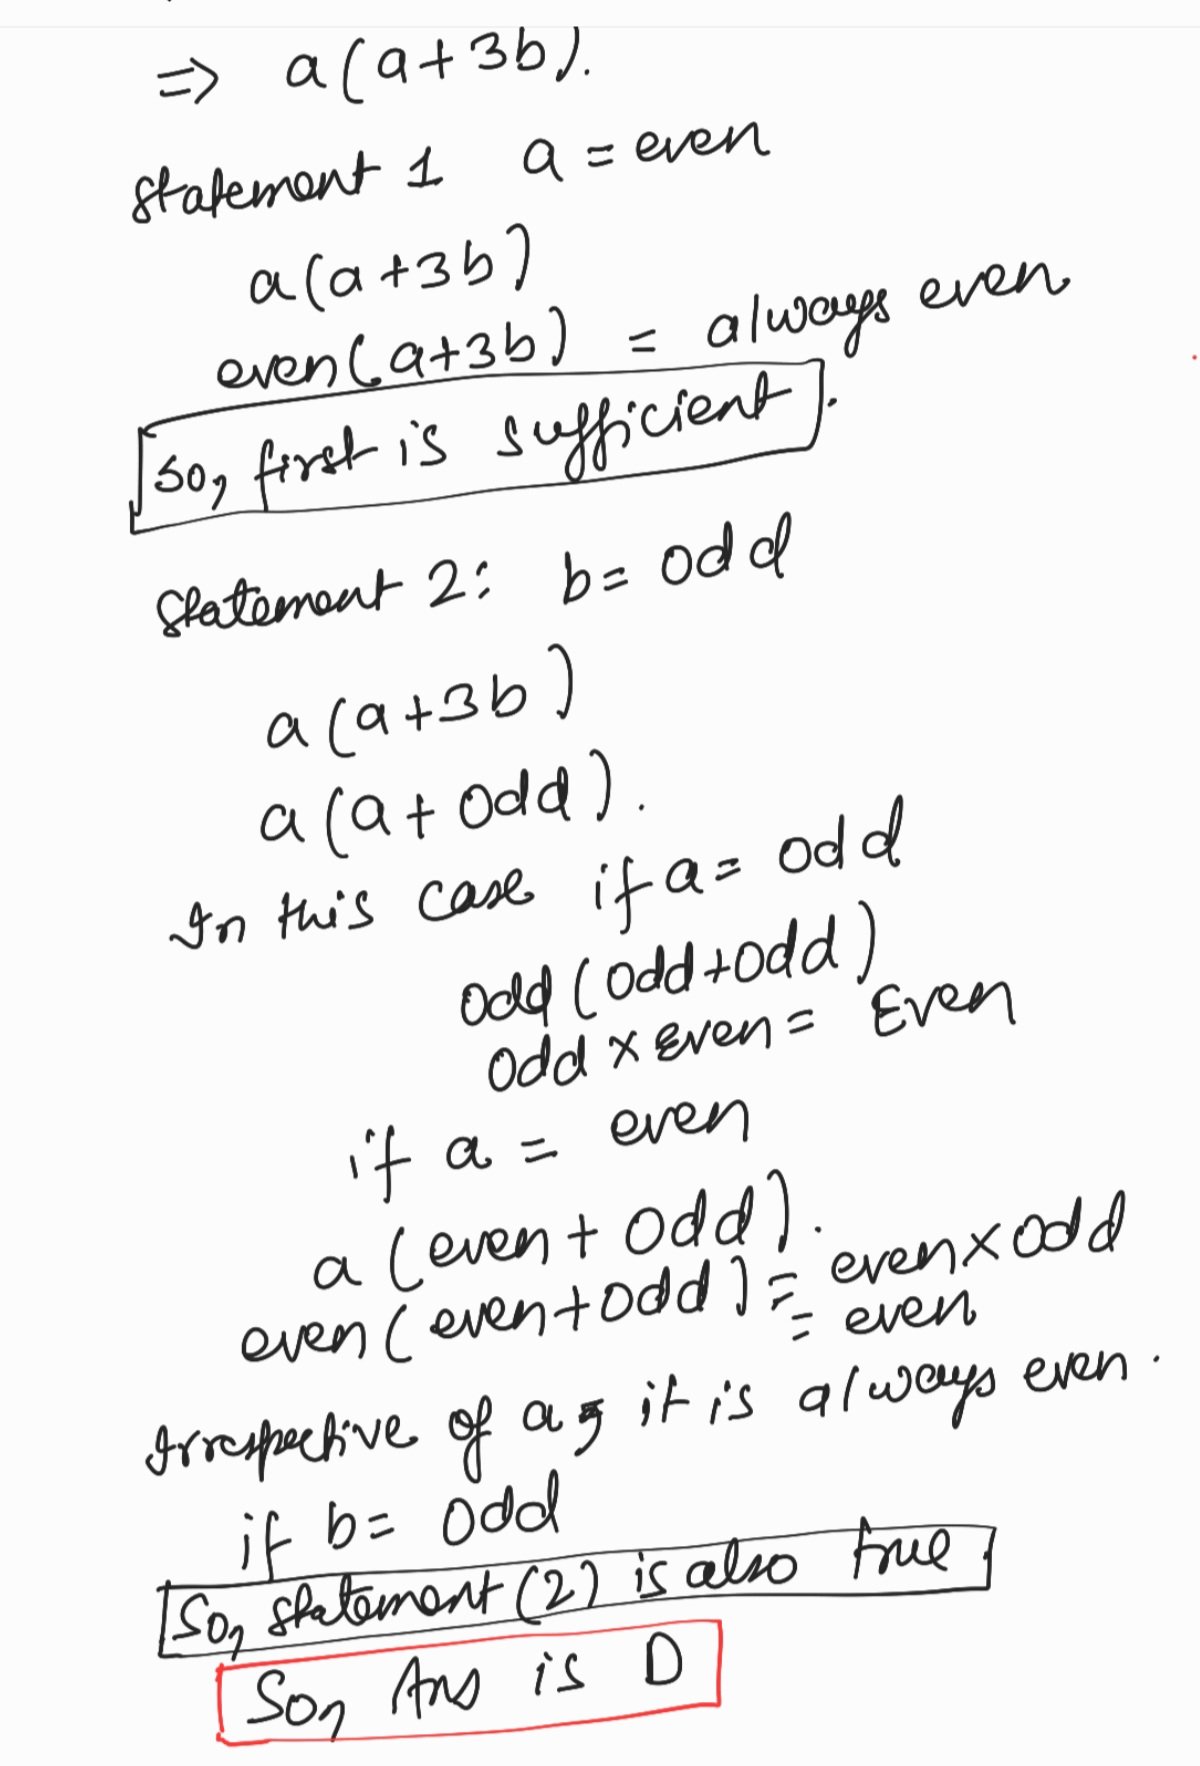 => a(a+3b).
Statement 1 a = even
a(a+3b)
even(a+3b) = always even
So, first is sufficient.
Statement 2: b= odd
a(a+3b)
a(a+odd).
In this case if a= odd
odd(odd+odd)
odd x even = Even
if a = even
a(even+odd).
even(even+odd) = even x odd
= even
Irrespective of a, it is always even.
if b= odd
So, statement (2) is also true
So, Ans is D